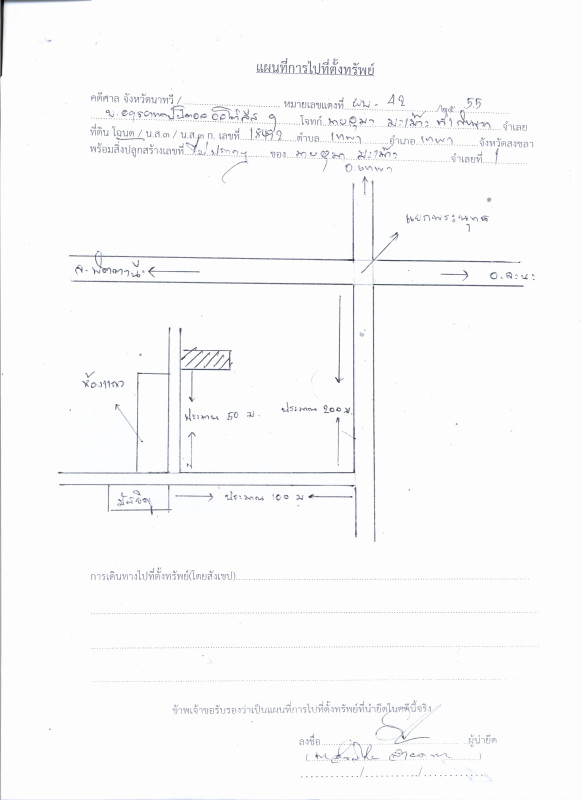 แผนที่การไปที่ตั้งทรัพย์
คดีศาล จังหวัดนาทวี / หมายเลขแดงที่ ผบ. 42 /๒๕ 55
โจทก์ จำเลย
ที่ดิน โฉนด / น.ส.๓ / น.ส.๓ ก. เลขที่ ตำบล เทพา อำเภอ เทพา จังหวัดสงขลา
พร้อมสิ่งปลูกสร้างเลขที่ ไม่ปรากฏ ของ จำเลยที่ 1
อ.เทพา
แยกพระพุทธ
จ.ปัตตานี
อ.จะนะ
ห้องแถว
ประมาณ 50 ม.
ประมาณ 200 ม.
มัสยิด
ประมาณ 100 ม
การเดินทางไปที่ตั้งทรัพย์(โดยสังเขป)
ข้าพเจ้าขอรับรองว่าเป็นแผนที่การไปที่ตั้งทรัพย์ที่นำยึดในคดีนี้จริง
ลงชื่อ ผู้นำยึด